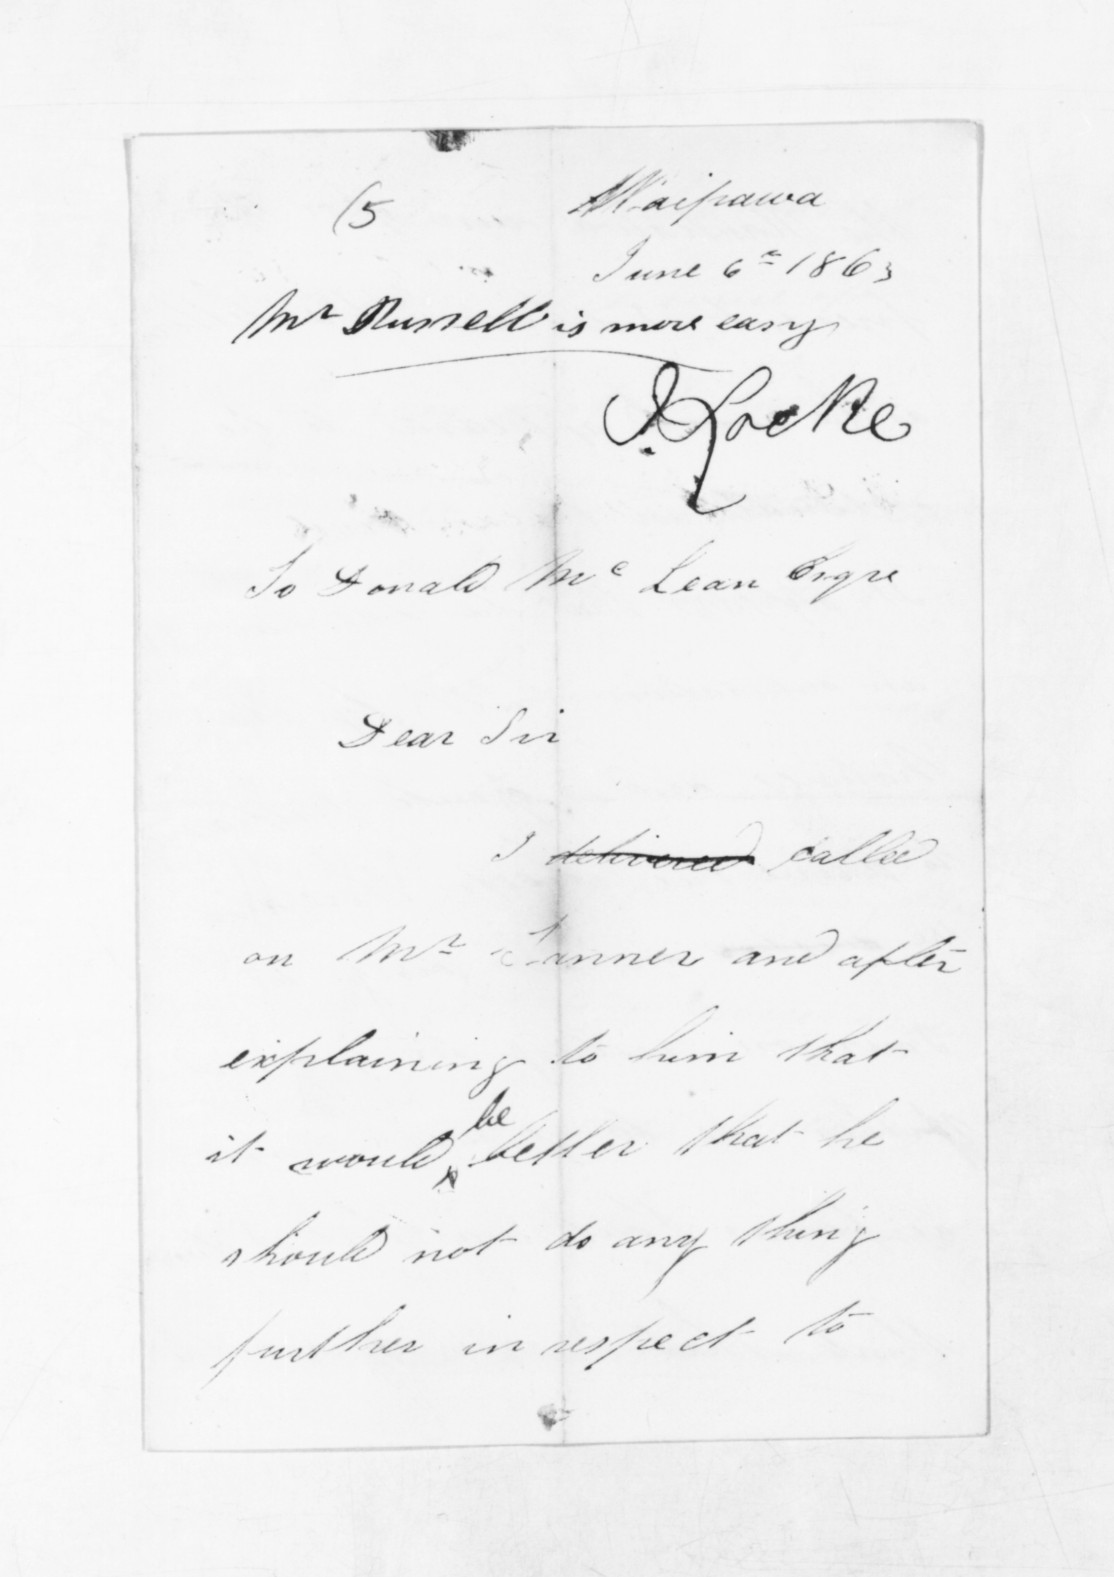 (5
Waipawa
June 6th 1863
Mr Russell is more easy
S. Locke
To Donald McLean Esqre
Dear Sir
I delivered called
on Mr Tanner and after
explaining to him that
be
it would better that he
should not do any thing
further in respect to